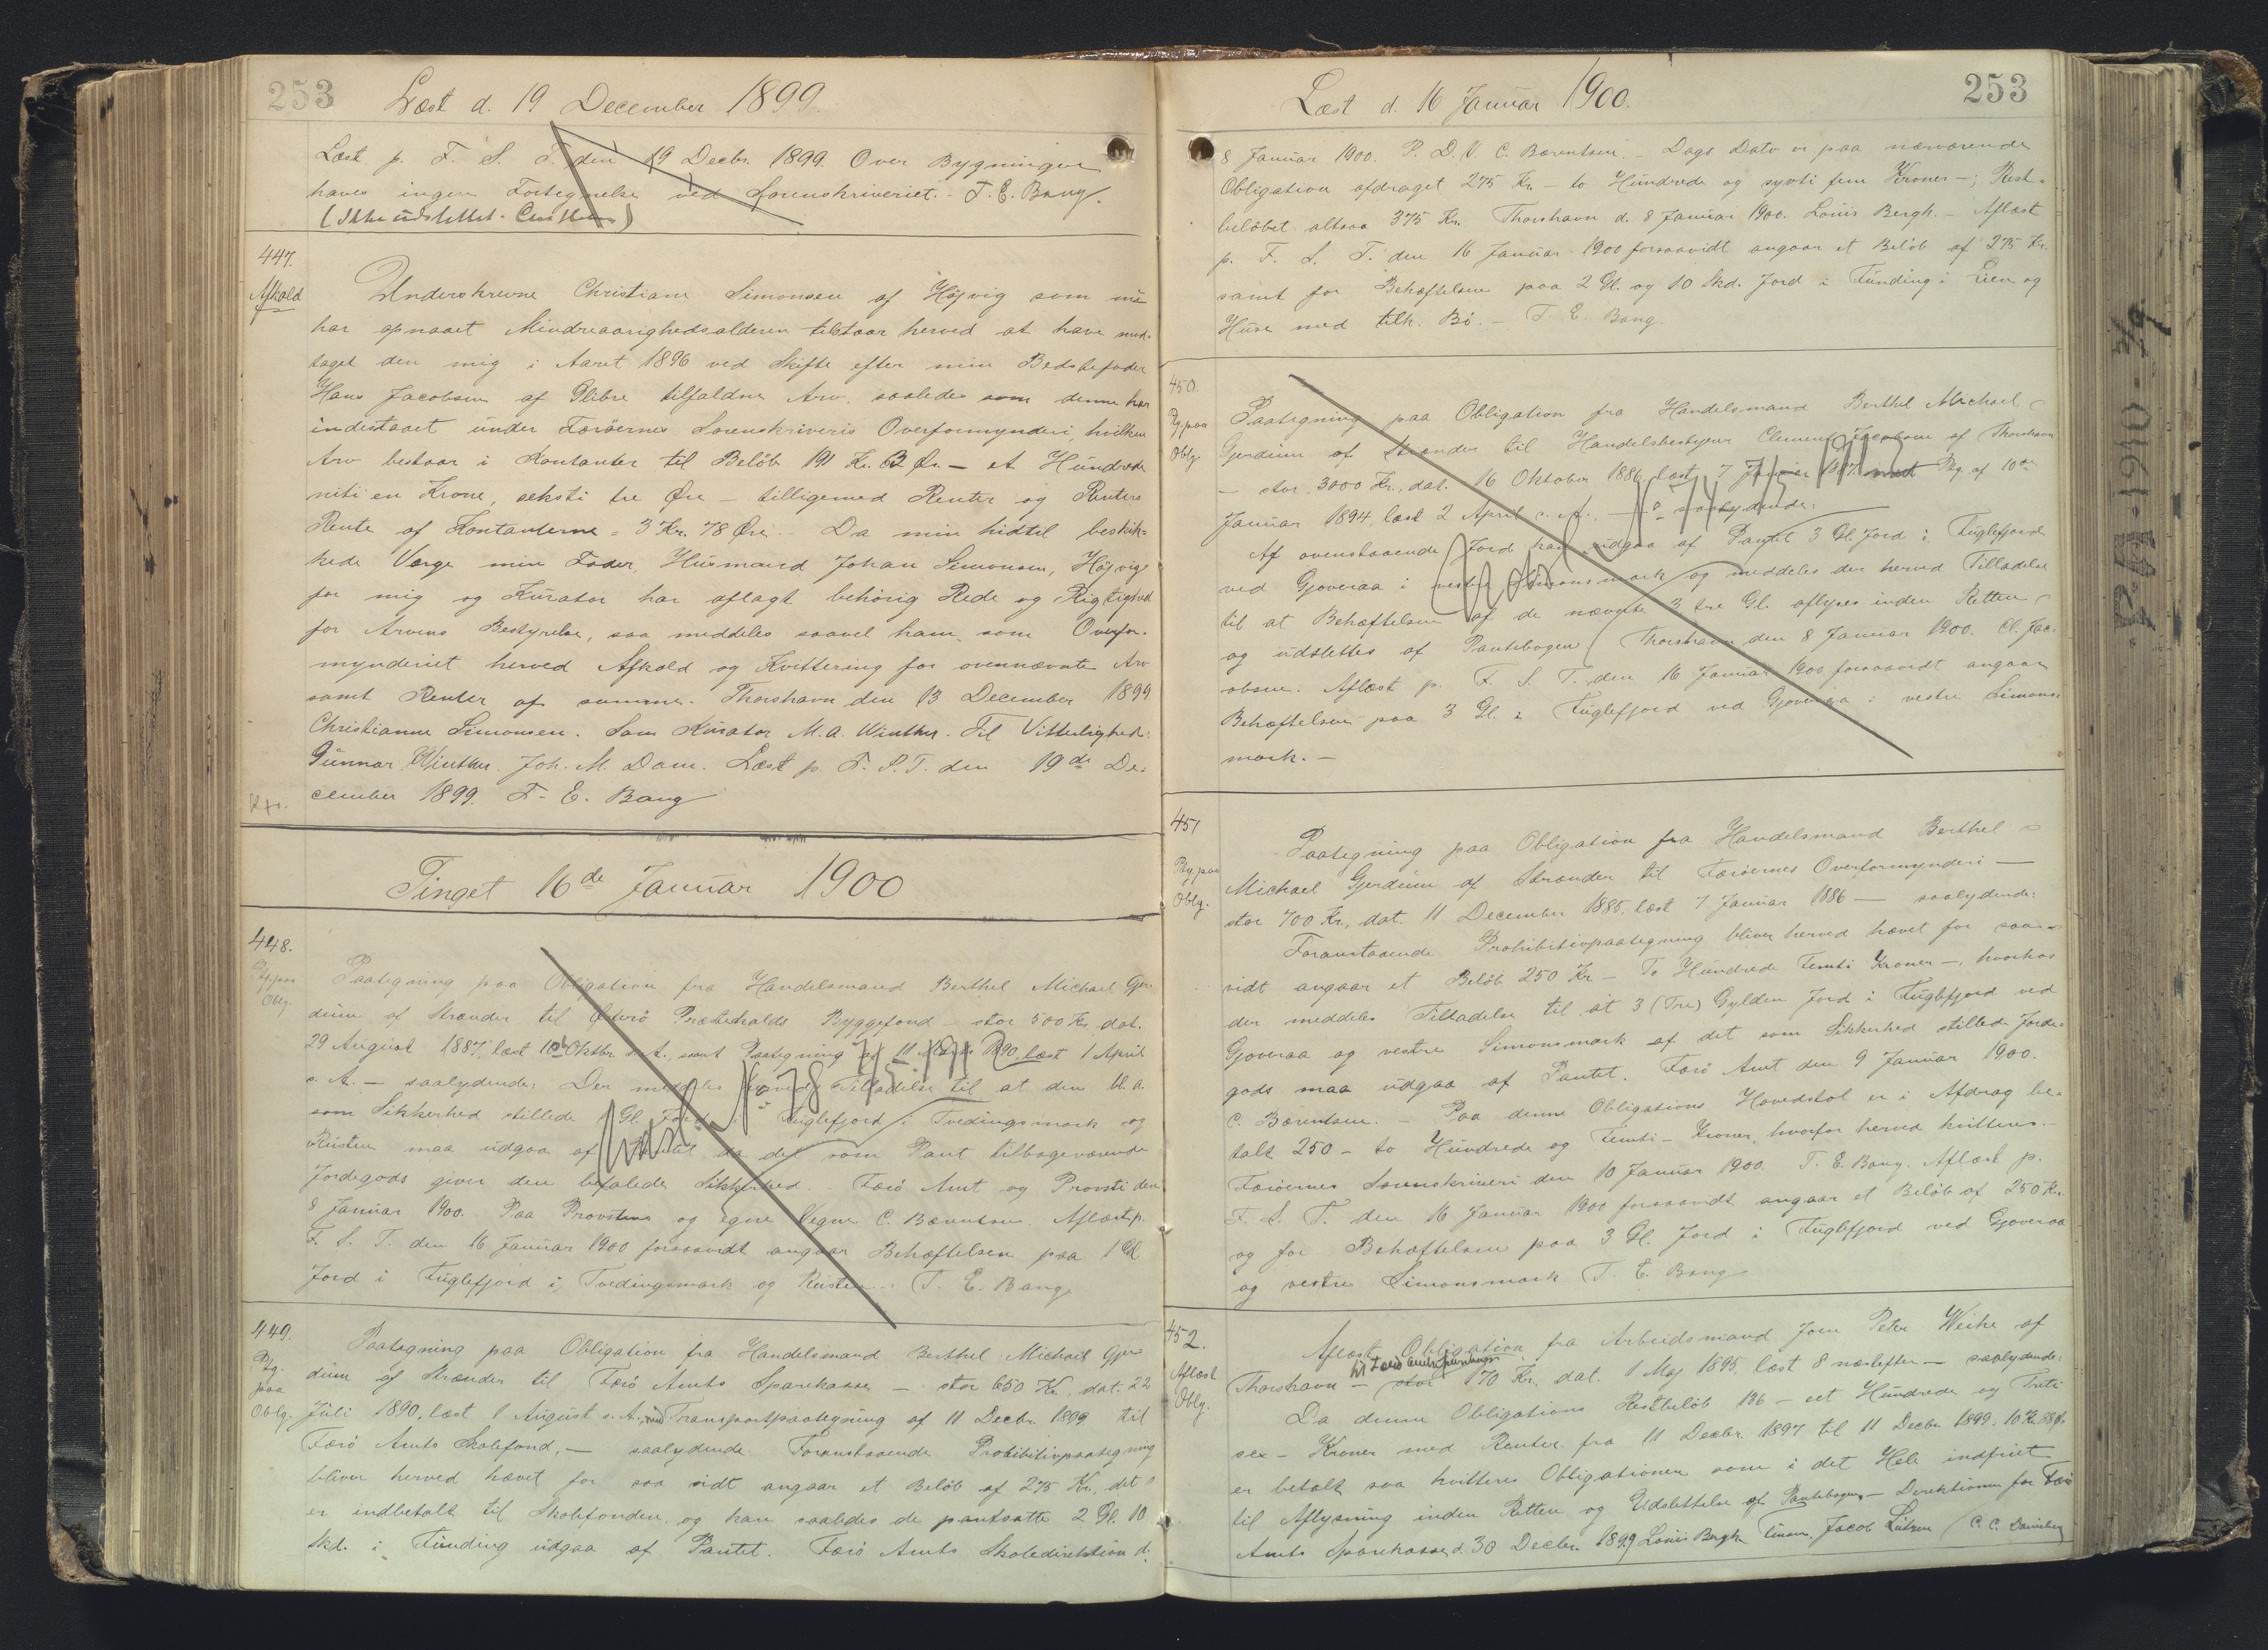 253
Læst d. 19 December 1899.
Læst p. F. S. T. den 19 Decbr. 1899. Over Bygningen
haves ingen Fortegnelse ved Sorenskriveriet. - T. E. Bang.
(Ikke udslettet.
447.
Afkald
Underskrevne Christiane Simonsen af Højvig som nu
har opnaaet Mindreaarighedsalderen tilstaar herved at have mod-
taget den mig i Aaret 1896 ved Skifte efter min Bedstefader
Hans Jacobsen af Glibre tilfaldne Arv, saaledes som denne har
indestaaet under Færøernes Sorenskriveris Overformynderi, hvilken
Arv bestaar i Kontanter til Beløb 191 Kr. 63 Ør. - et Hundrede
niti en Krone, seksti tre Øre - tilligemed Renter og Renters
Rente af Kontanterne = 3 Kr. 78 Øre. - Da min hidtil beskik-
kede Værge min Fader, Husmand Johan Simonsen, Højvig
for mig og Kurator har aflagt behørig Rede og Rigtighed
for Arvens Bestyrelse, saa meddeles saavel ham som Overfor-
mynderiet herved Afkald og Kvittering for ovennævnte Arv
samt Renter af samme. Thorshavn den 13 December 1899
Christianne Simonsen. Som Kurator M. A. Winther. Til Vitterlighed:
Gunnar Winther. Joh. M. Dam. Læst p. F. S. T. den 19de De-
cember 1899. T. E. Bang
Tinget 16de Januar 1900
448.
Ptg. paa
Oblg.
Paategning paa Obligation fra Handelsmand Berthel Michael Gjer-
dum af Strænder til Østerø Præstekalds Byggefond - stor 500 Kr. dat.
29 August 1887, læst 10 Oktbr. s. A., samt Paategning af 11 Marts 1890, læst 1 April
s. A. - saalydende: Der meddeles herved Tilladelse til at den bl. a.
som Sikkerhed stillede 1 Gl. Jord i Fuglefjord i Tvedingsmark og
Risten maa udgaa af Pantet da det som Pant tilbageværende
Jordegods giver den befalede Sikkerhed. - Færø Amt og Provsti den
8 Januar 1900. Paa Provstens og egne Vegne C. Bærentsen. Aflæst p.
F. S. T. den 16 Januar 1900 forsaavidt angaar Behæftelsen paa 1 Gl.
Jord i Fuglefjord i Tvedingsmark og Risten. T. E. Bang
449.
Ptg.
paa
Oblg.
Paategning paa Obligation fra Handelsmand Berthel Michael Gjer-
dum af Strænder til Færø Amts Sparekasse - stor 650 Kr., dat. 22
Juli 1890, læst 1 August s. A., med Transportpaategning af 11 Decbr. 1899 til
Færø Amts Skolefond, - saalydende: Foranstaaende Prohibitivpaategning
bliver herved hævet for saa vidt angaar et Beløb af 275 Kr., det
er indbetalt til Skolefonden, og kan saaledes de pantsatte 2 Gl. 10
Skd. i Funding udgaa af Pantet. Færø Amts Skoledirektion d.
Læst d. 16 Januar 1900.
253
8 Januar 1900. P. D. V. C. Bærentsen. - Dags Dato er paa nærværende
Obligation afdraget 275 Kr. - to Hundrede og syvti fem Kroner -; Rest-
beløbet altsaa 375 Kr. Thorshavn d. 8 Januar 1900. Louis Bergh. - Aflæst
p. F. S. T. den 16 Januar 1900 forsaavidt angaar et Beløb af 275 Kr.
samt for Behæftelsen paa 2 Gl. og 10 Skd. Jord i Funding i Lien og
Huse med tilh. Bø. - T. E. Bang.
450.
Ptg. paa
Oblg.
Paategning paa Obligation fra Handelsmand Berthel Michael
Gjerdum af Strænder til Handelsbestyrer Clement Jacobsen af Thorshavn
- stor 3000 Kr., dat. 16 Oktober 1886, læst 7 Januar 1887 med Ptg. af 10de
Januar 1894, læst 2 April s. A., - saalydende:
Af ovenstaaende Jord kan udgaa af Pantet 3 Gl. Jord i Fuglefjord
ved Gjoveraa i vestre Simonsmark og meddeles der herved Tilladelse
til at Behæftelsen af de nævnte 3 tre Gl. aflyses inden Retten
og udslettes af Pantebogen. Thorshavn den 8 Januar 1900. Cl. Jac-
obsen. Aflæst p. F. S. T. den 16 Januar 1900 forsaavidt angaar
Behæftelsen paa 3 Gl. i Fuglefjord ved Gjoveraa i vestre Simons-
mark. -
451
Ptg. paa
Oblg.
Paategning paa Obligation fra Handelsmand Berthel
Michael Gjerdum af Strænder til Færøernes Overformynderi -
stor 700 Kr., dat. 11 December 1885, læst 7 Januar 1886 - saalydende:
Foranstaaende Prohibitivpaategning bliver herved hævet for saa-
vidt angaar et Beløb 250 Kr. - To Hundrede Femti Kroner -, hvorhos
der meddeles Tilladelse til at 3 (Tre) Gylden Jord i Fuglefjord ved
Gjoveraa og vestre Simonsmark af det som Sikkerhed stillede Jorde-
gods maa udgaa af Pantet. Færø Amt den 9 Januar 1900.
C. Bærentsen. - Paa denne Obligations Hovedstol er i Afdrag be-
talt 250 - to Hundrede og Femti - Kroner, hvorfor herved kvitteres. -
Færøernes Sorenskriveri den 10 Januar 1900. T. E. Bang. Aflæst p.
F. S. T. den 16 Januar 1900 forsaavidt angaar et Beløb af 250 Kr.
og for Behæftelsen paa 3 Gl. Jord i Fuglefjord ved Gjoveraa
og vestre Simonsmark T. E. Bang
452.
Aflæst
Oblg.
Aflæst Obligation fra Arbeidsmand Joen Peter Weihe af
Thorshavn - til Færø Amts Sparekasse stor 170 Kr. dat. 1 Maj 1895, læst 8 næstefter - saalydende:
Da denne Obligations Restbeløb 136 - et Hundrede og Treti
sex - Kroner med Renter fra 11 Decbr. 1897 til 11 Decbr. 1899. 10 Kr. 88 Ø.
er betalt saa kvitteres Obligationen som i det Hele indfriet
til Aflysning inden Retten og Udslettelse af Pantebogen. - Direktionen for Færø
Amts Sparekasse d. 30 Decbr. 1899 Louis Bergh Jacob Lützen / C. C. Danielsen